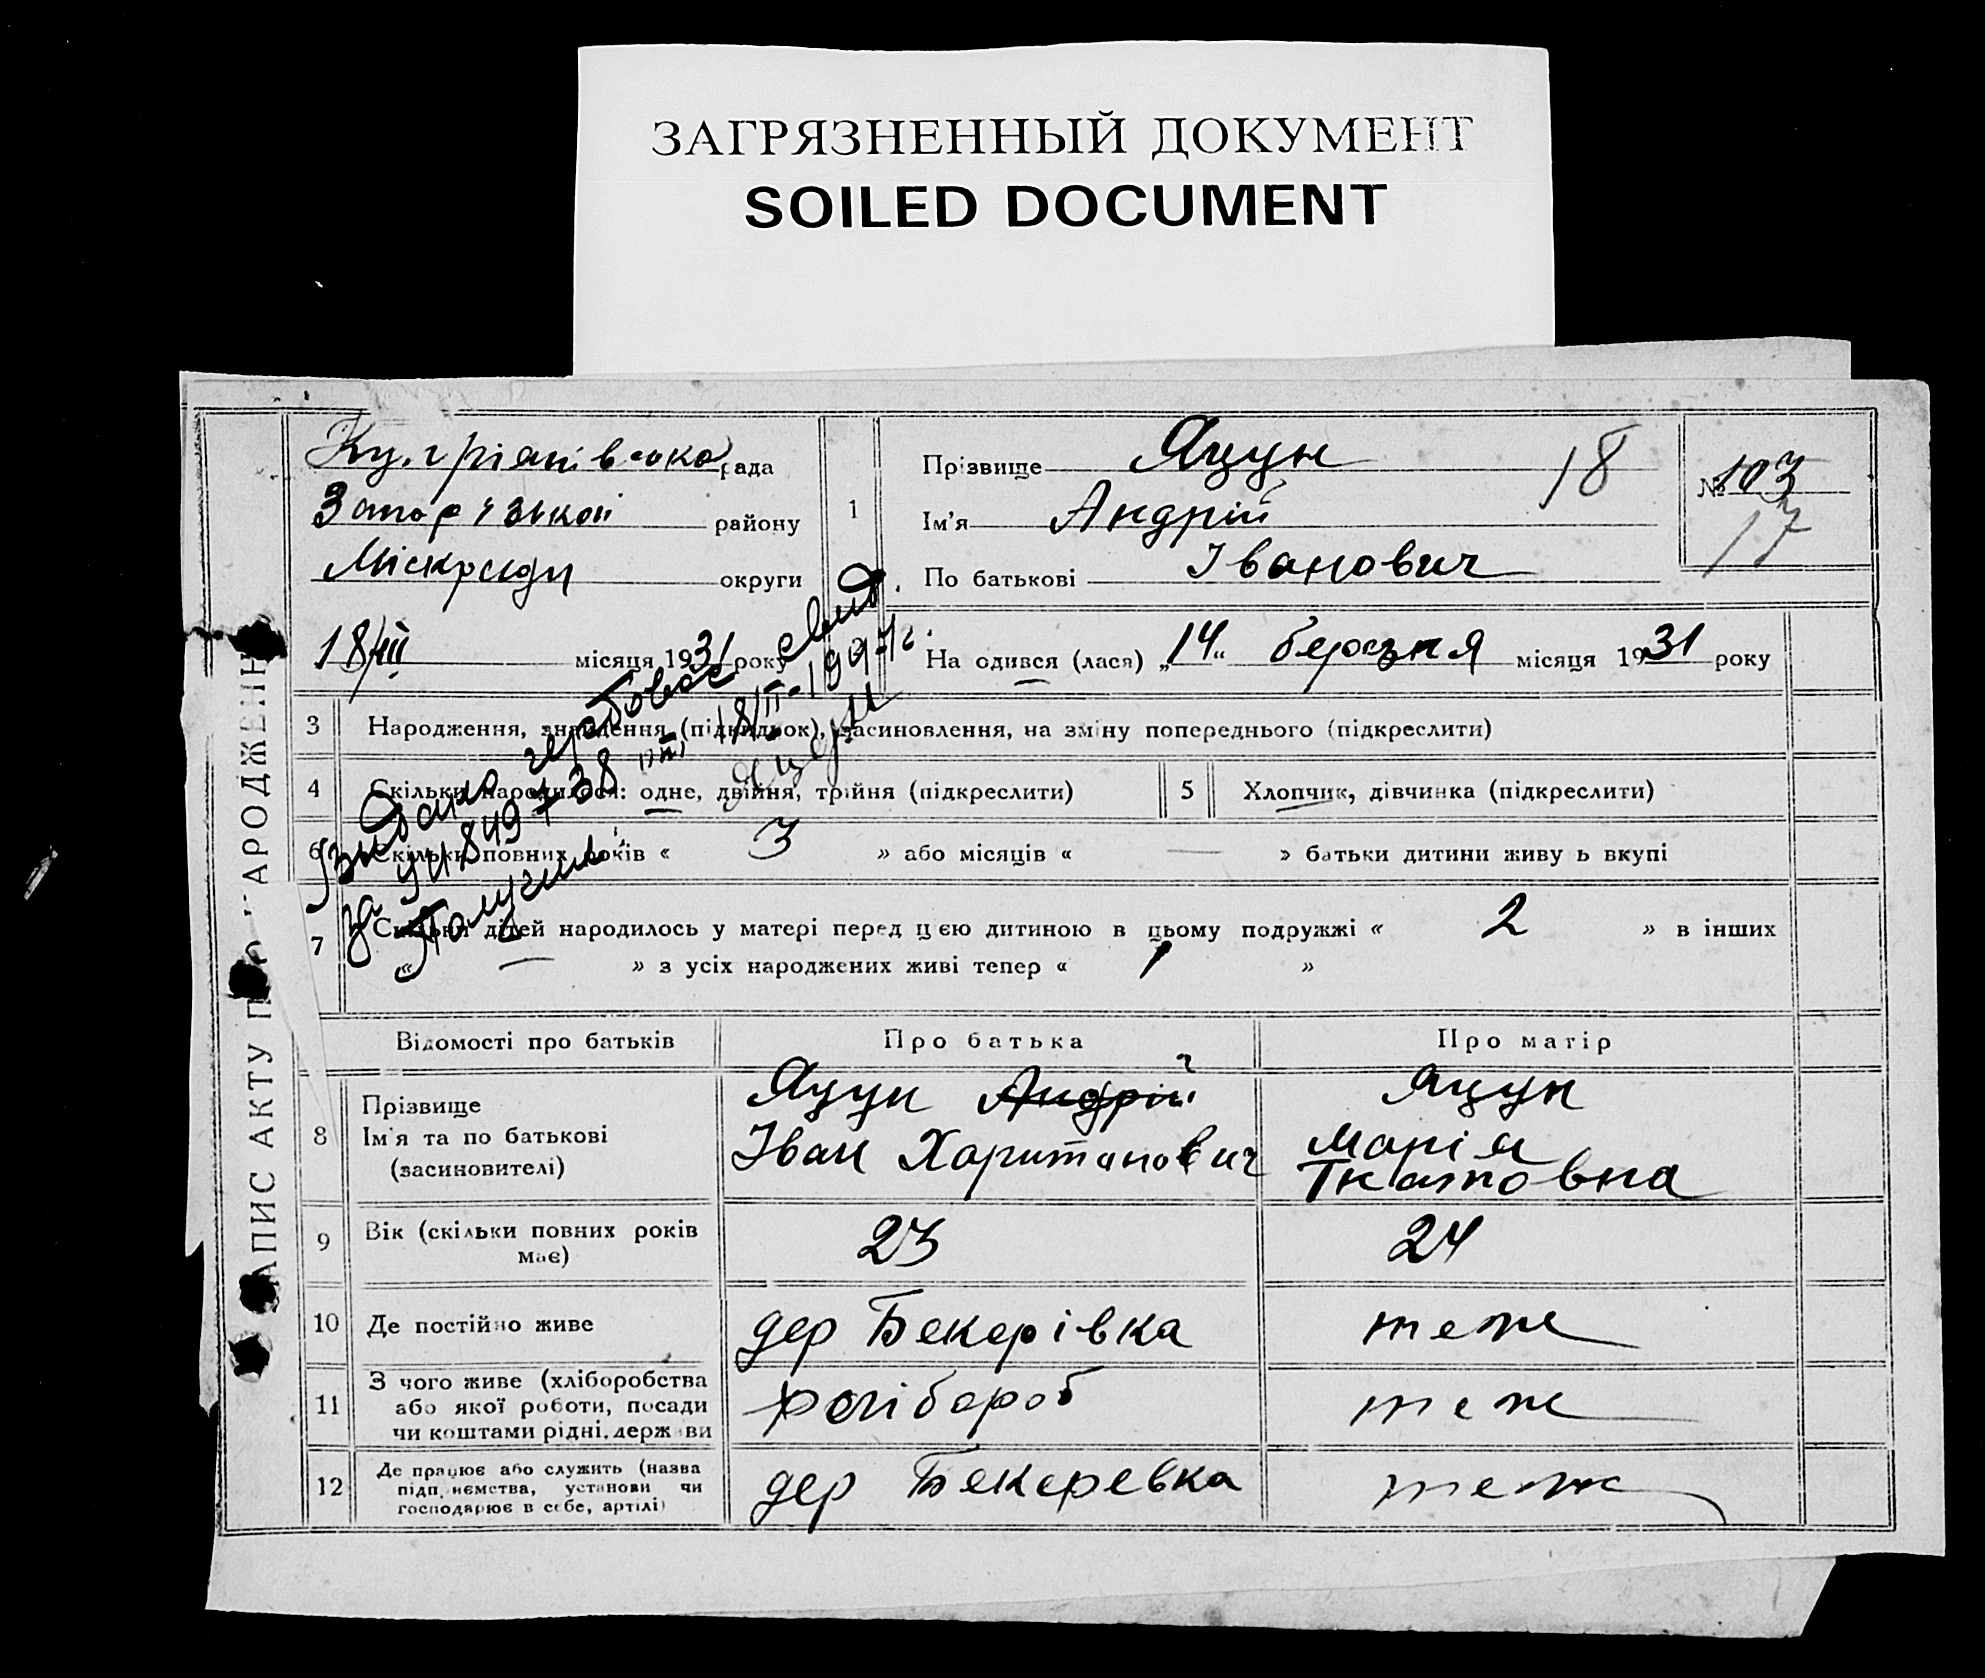 ЗАГРЯЗНЕННЫЙ ДОКУМЕНТ
SOILED DOCUMENT
рада
району
Міскради округи
18/III місяця 1931 року
1
Прізвище Яцун 18
Ім'я Андрій
По батькові Іванович
№ 103
17
На одився (лася) „14“ березня місяця 1931 року
3 Народження, знайдення (підкидьок), засиновлення, на зміну попереднього (підкреслити)
4 Скільки народилося: одне, двійня, трійня (підкреслити)
5 Хлопчик, дівчинка (підкреслити)
6 Скільки повних років « 3 » або місяців « — » батьки дитини живу ь вкупі
7 Скільки дітей народилось у матері перед цією дитиною в цьому подружжі « 2 » в інших
« — » з усіх народжених живі тепер « 1 »
Відомості про батьків Про батька Про матір
8 Прізвище
Ім'я та по батькові
(засиновителі)
Яцун Андрій
Іван Хаританович
Яцун
Марія
9 Вік (скільки повних років має) 23 24
10 Де постійно живе дер Бекерівка теж
11 З чого живе (хліборобства
або якої роботи, посади
чи коштами рідні, держави
хлібороб теж
12 Де працює або служить (назва
підп иємства, установи чи
господарює в себе, артілі)
дер Бекеревка теж